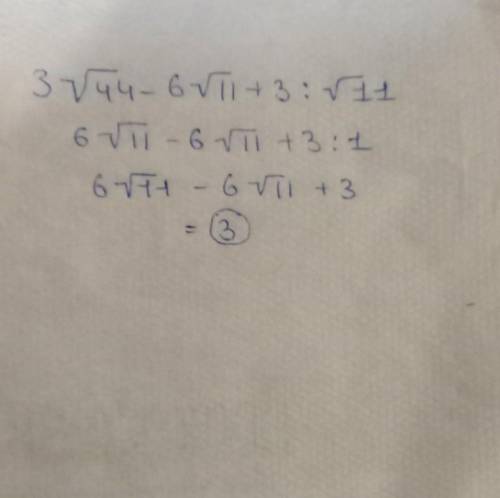 3√44 - 6√11 + 3 : √11
6√11 - 6√11 + 3 : 1
6√11 - 6√11 + 3
= 3